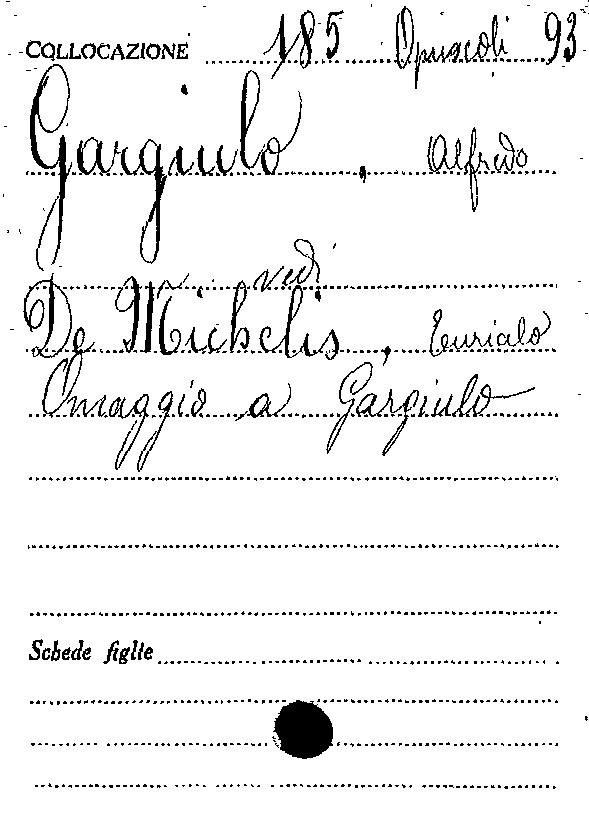 COLLOCAZIONE 185 Opuscoli 93
Gargiulo, Alfredo
vedi
De Michelis, Eurialo
Omaggio a Gargiulo
Schede figlie